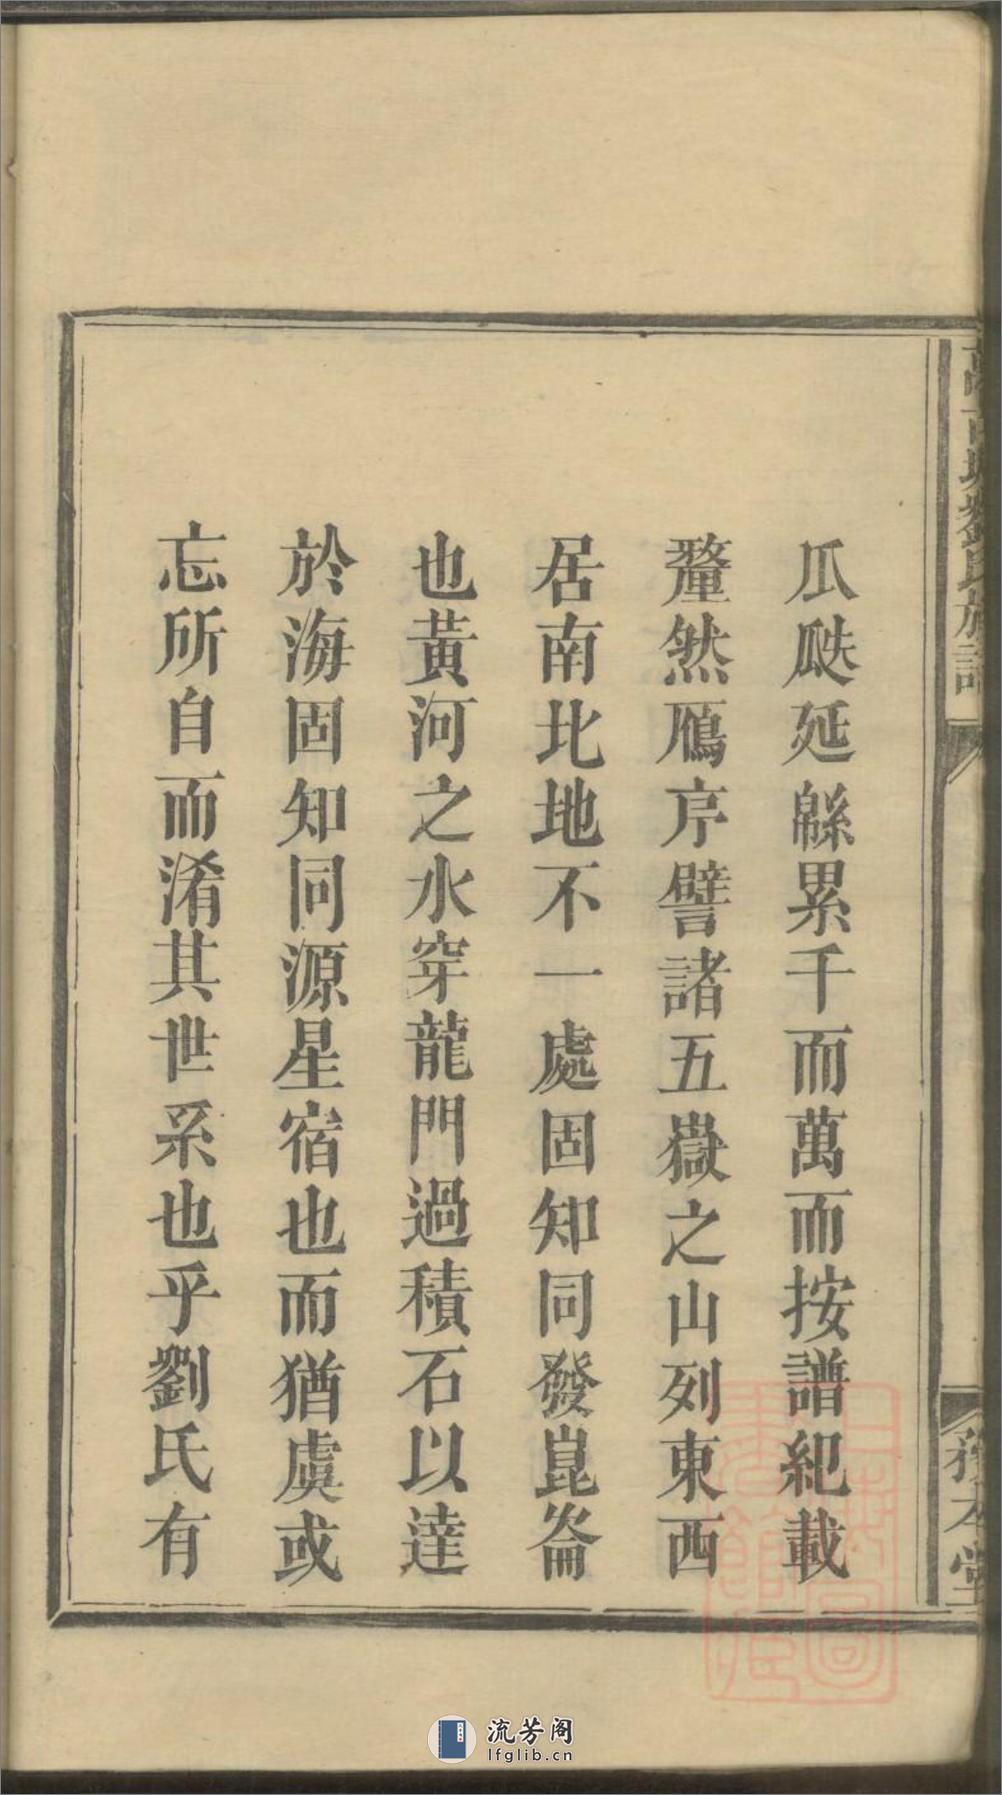 瓜瓞延緜累千而萬而按譜紀載
釐然鴈序譬諸五嶽之山列東西
居南北地不一處固知同發崑崙
也黃河之水穿龍門過積石以達
於海固知同源星宿也而猶虞或
忘所自而淆其世系也乎劉氏有
劉氏族譜
務本堂
流芳阁
lfglib.cn